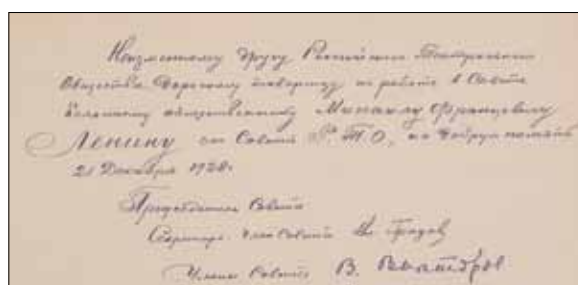 Неизменному другу Российского Театрального
Общества Дорогому товарищу по работе в Совете
общественнику Михаилу Францевичу
Ленину от Совета Р.Т.О. на добрую память
21 Декабря 1928г.
Председатель Совета
Секретарь Член Совета
Члены Совета В.